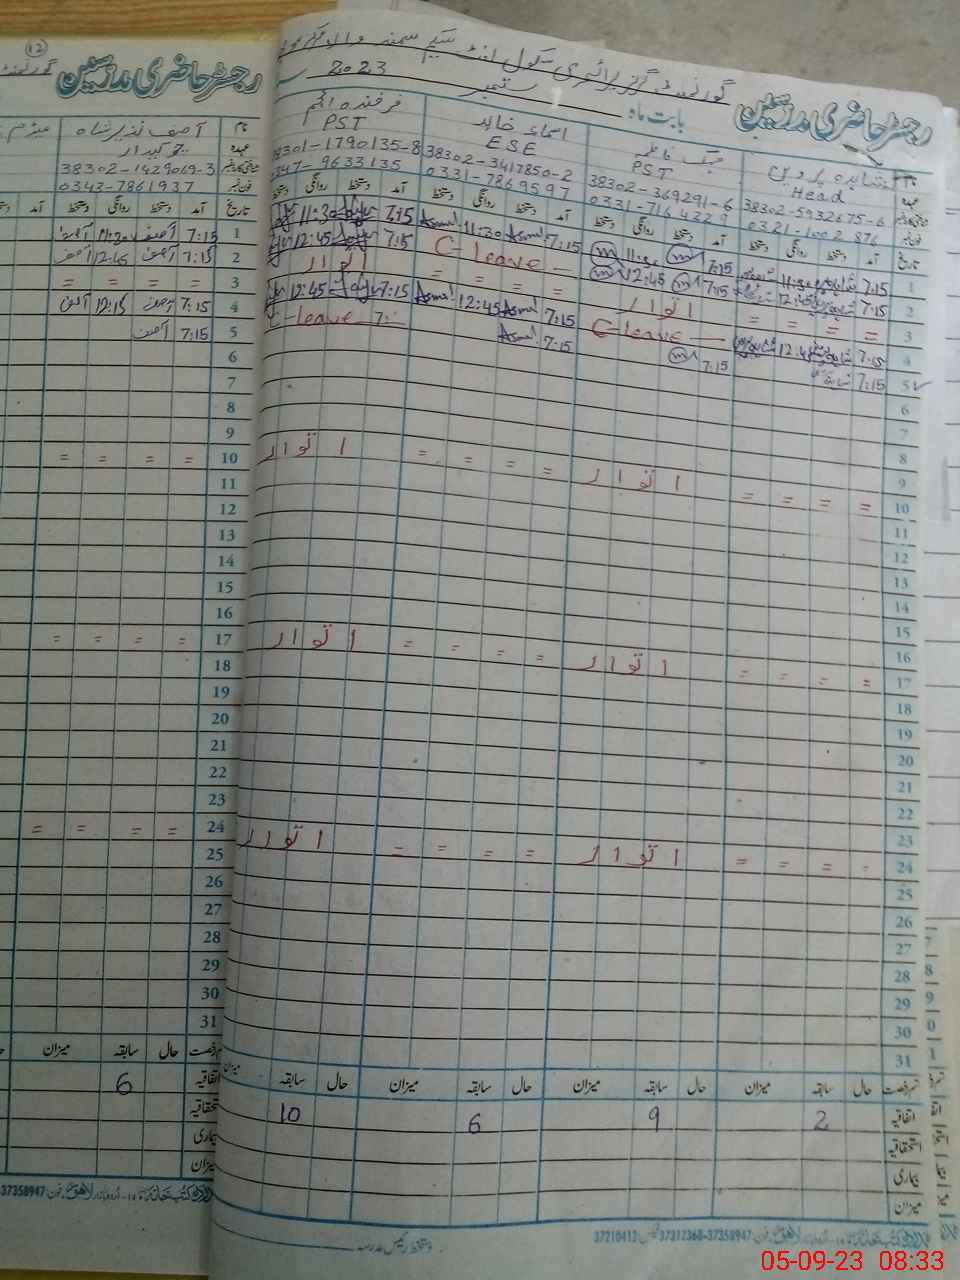 رجسٹر حاضری مدرسین
گورنمنٹ گرلز پرائمری سکول
بابت ماہ ستمبر 2023
نام
عہدہ Head
38302-5932675-6
0321-1002876
PST
38302-369291-6
0331-7164229
اسماء خالد
ESE
38302-3417850-2
0331-7869597
فرخندہ انجم
PST
38301-1790135-8
0347-9633135
تاریخ آمد دستخط روانگی دستخط آمد دستخط روانگی دستخط آمد دستخط روانگی دستخط آمد دستخط روانگی دستخط
1 7:15 11:30 7:15 7:15 Asma 11:30 Asma 7:15 11:30
2 7:15 12:45 7:15 12:45 C-leave 7:15 12:45
3 = = = = اتوار = = = = اتوار
4 7:15 12:45 C-leave 7:15 Asma 12:45 Asma 7:15 12:45
5 7:15 7:15 7:15 Asma C-leave
6
7
8
9
10 = = = = اتوار = = = = اتوار
11
12
13
14
15
16
17 = = = = اتوار = = = = اتوار
18
19
20
21
22
23
24 = = = اتوار = = = = اتوار
25
26
27
28
29
30
31
قسم رخصت حال سابقہ میزان حال سابقہ میزان حال سابقہ میزان حال سابقہ میزان
اتفاقیہ 2 9 6 10
استحقاقیہ
بیماری
میزان
37210412 37312368-37358947
دستخط رئیس مدرسہ
12
رجسٹر حاضری مدرسین
نام آصف نذیر شاہ
عہدہ چوکیدار
38302-1429069-3
0343-7861937
تاریخ آمد دستخط روانگی دستخط آمد
1 7:15 آصف 11:30 آصف
2 7:15 آصف 12:45 آصف
3 = = = =
4 7:15 آصف 12:15 آصف
5 7:15 آصف
6
7
8
9
10 = = = =
11
12
13
14
15
16
17 = = = =
18
19
20
21
22
23
24 = = = =
25
26
27
28
29
30
31
قسم رخصت حال سابقہ میزان
اتفاقیہ 6
استحقاقیہ
بیماری
میزان
37358947
05-09-23 08:33